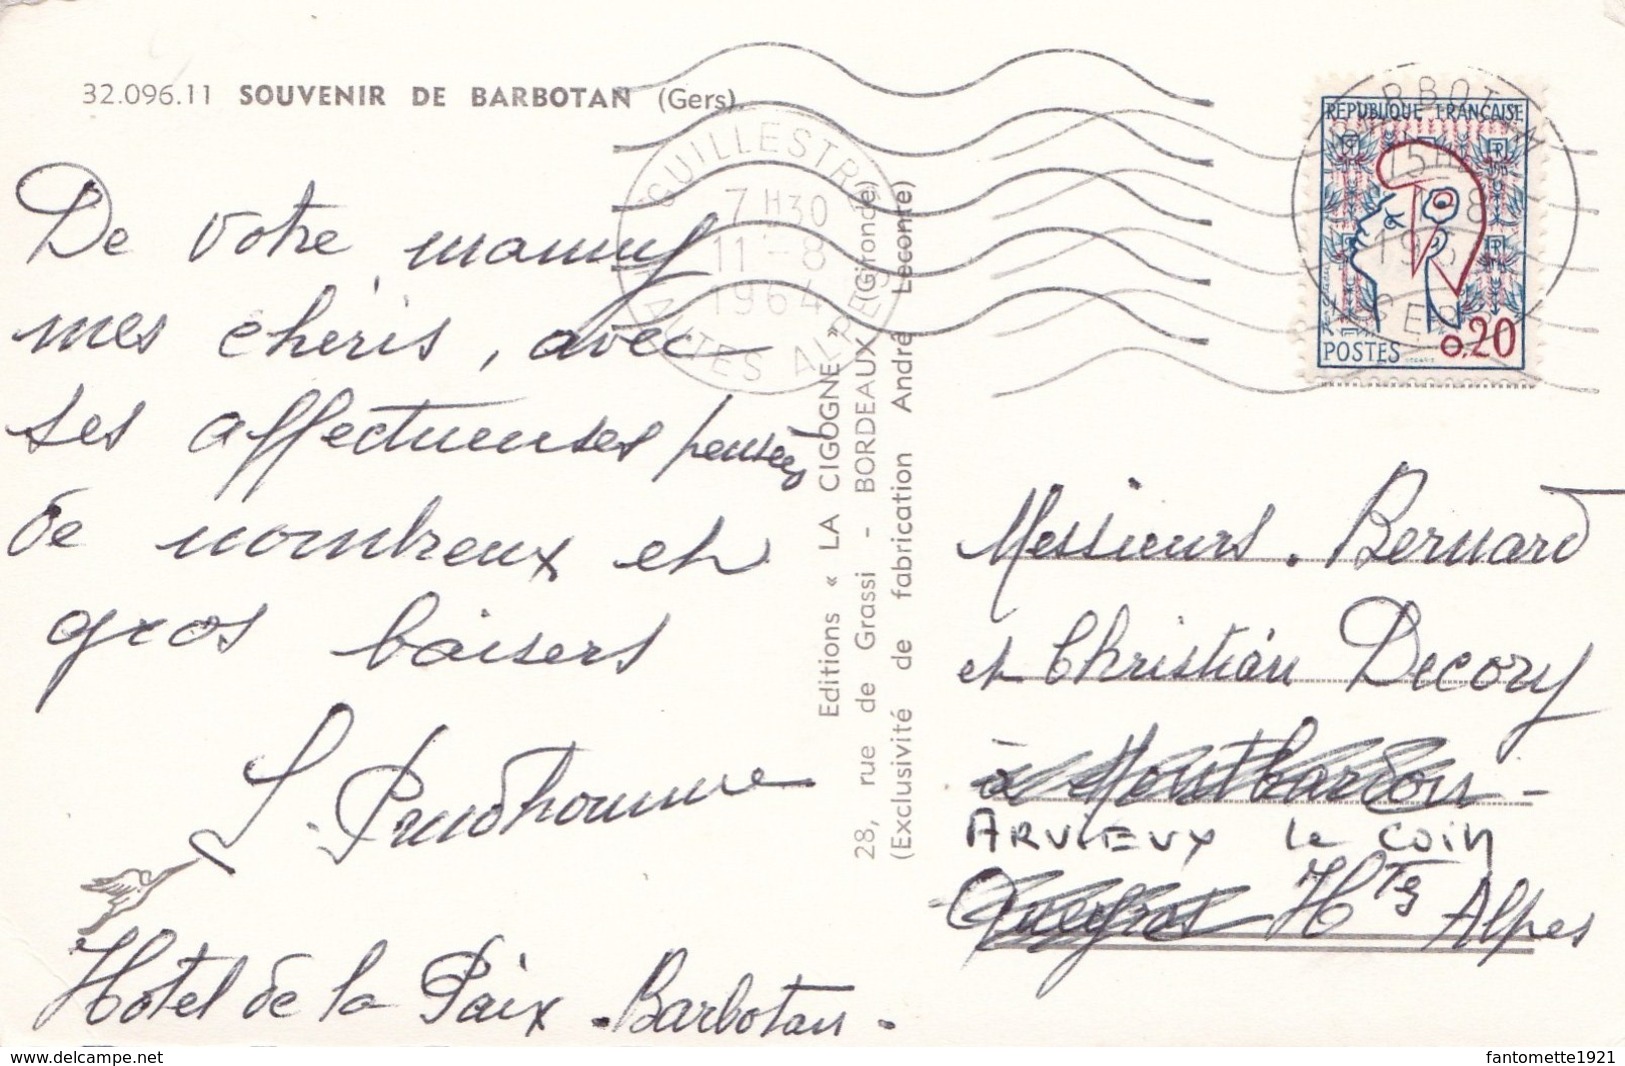 32.096.11 SOUVENIR DE BARBOTAN (Gers).
De votre mamuy
mes chéris, avec
ses affectueuses pensées
de nombreux et
gros baisers
S. Prudhomme
Hotel de la Paix - Barbotan -
GUILLESTRE
7 H30
11 - 8
1964
HAUTES ALPES
Editions « LA CIGOGNE »
28, rue de Grassi - BORDEAUX (Gironde)
(Exclusivité de fabrication André Leconte)
BARBOTAN
GERS
REPUBLIQUE FRANÇAISE
POSTES 0,20
Messieurs. Bernard
et Christian Decory
à Montbardon -
ARVIEUX le coin
Queyras Htes Alpes
www.delcampe.net
fantomette1921